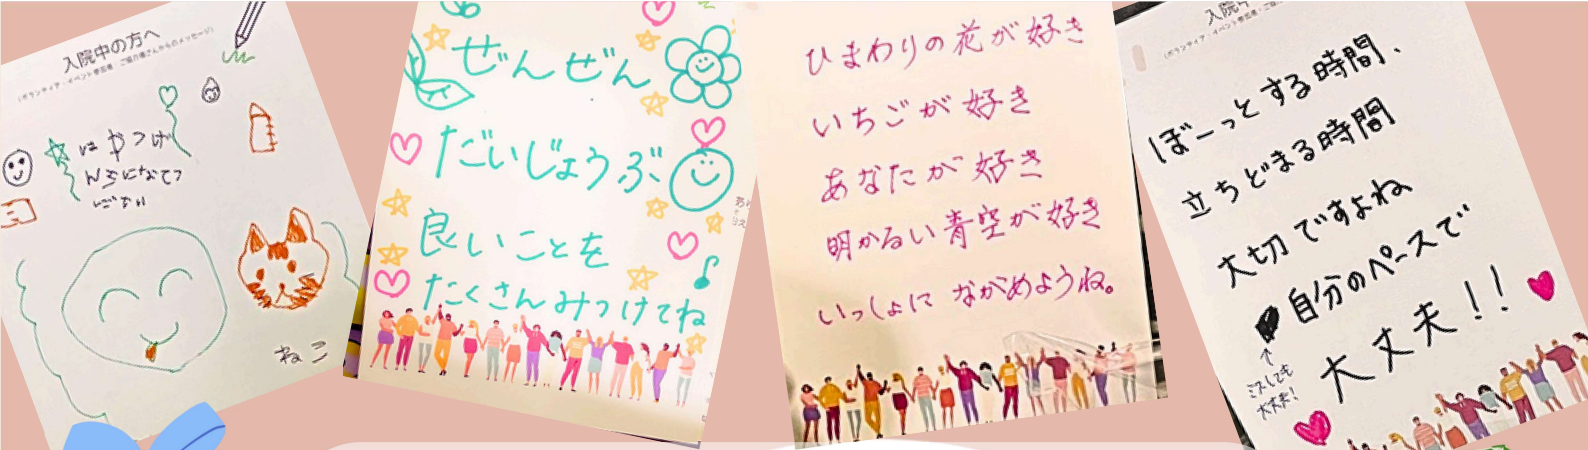 入院中の方へ
(ボランティア・イベント参加者・ご協力者さんからのメッセージ)
はやつげ
んきになてっ
ください
ねこ
ぜんぜん
だいじょうぶ
良いことを
たくさんみつけてね
ひまわりの花が好き
いちごが好き
あなたが好き
明かるい青空が好き
いっしょにながめようね。
ぼーっとする時間、
立ちどまる時間
大切ですよね
自分のペースで
大丈夫!!
↑
ミスしても
大丈夫!